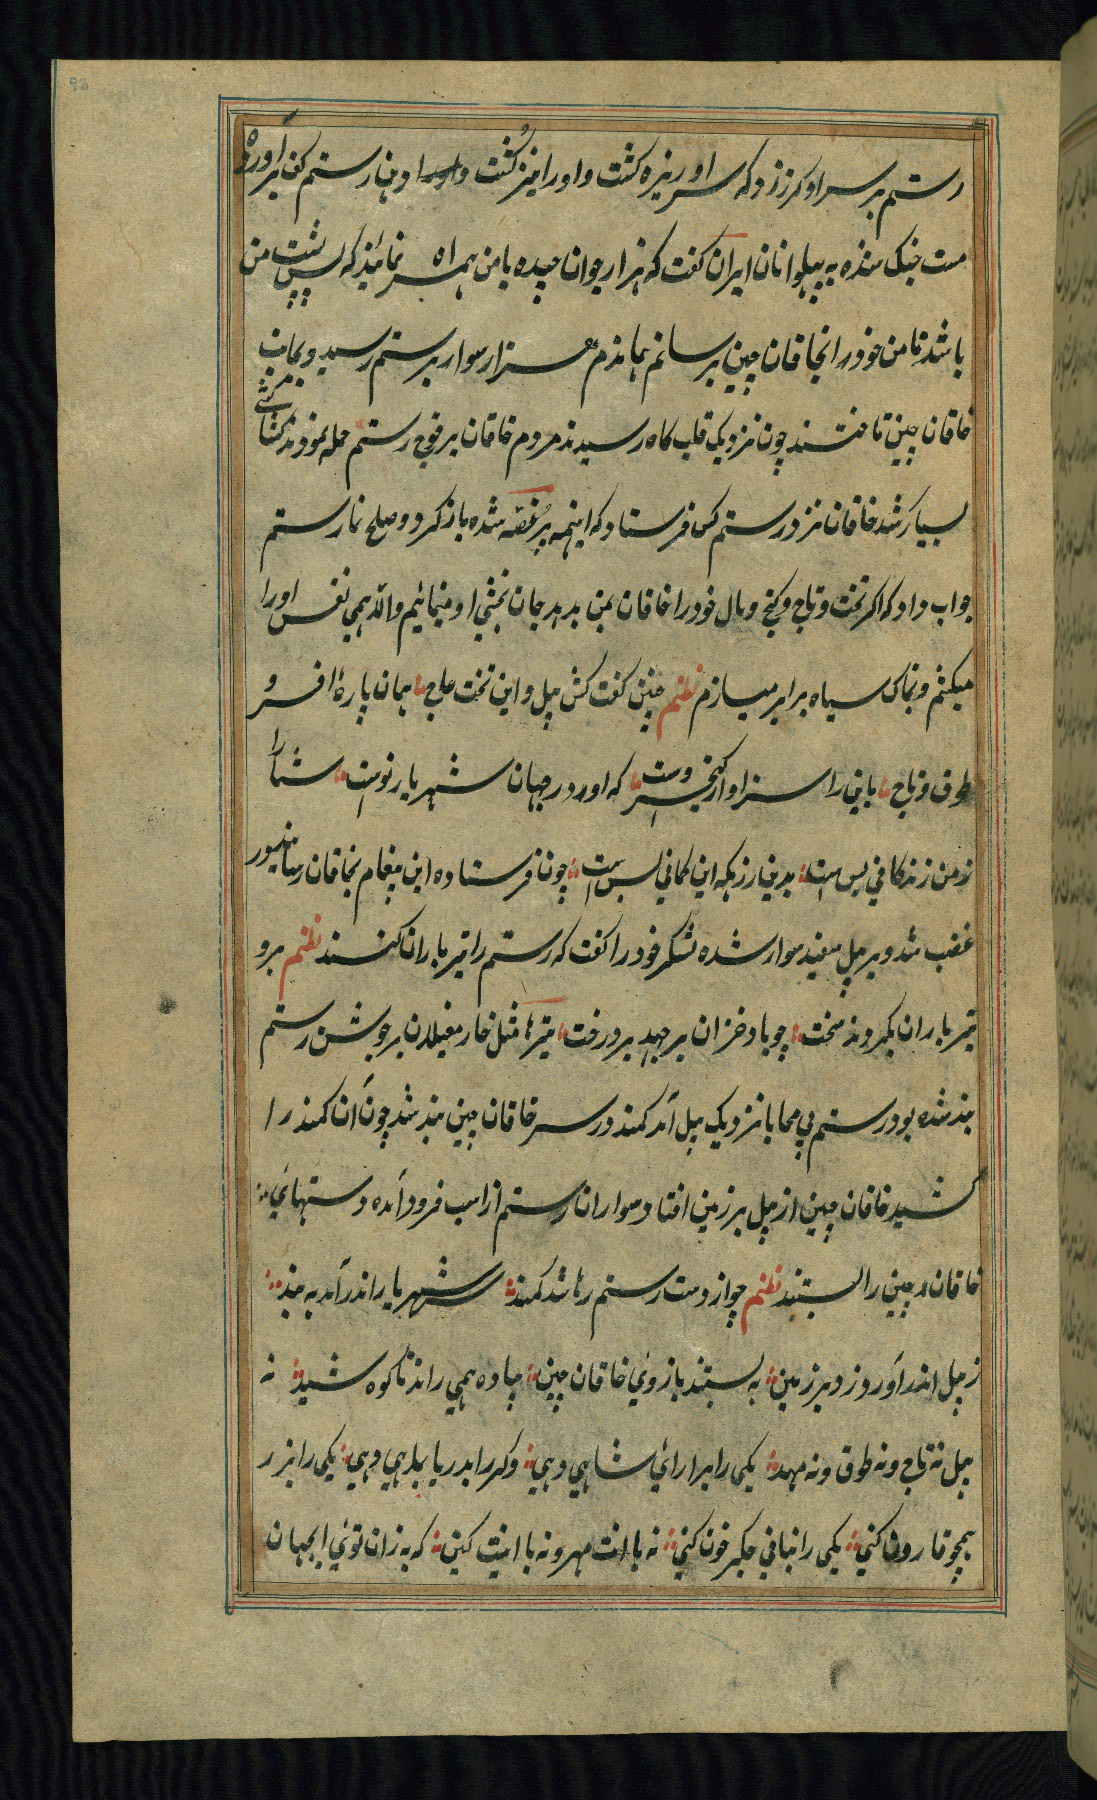 رستم بر سر او گرز زد که سر او ریزه گشت و او را نیز کشت و رستم کف بر آورده
مست جنک شده به پهلوانان ایران کفت که هزار جوان چیده با من همراه نمائید که پس پشت من
باشد تا من خود را بخاقان چین برسانم هماندم هزار سوار بر ستم رسید و بجانب
خاقان چین تاختند چون نزدیک قلب کاه رسیدند مردم خاقان بر فوج رستم حمله نمودند کشاکشی
بسیار شد خاقان نزد رستم کس فرستاد که اینهمه پر غصه شده باز کرد و صلح نما رستم
جواب داد که اکر تخت و تاج و کنج و مال خود را خاقان بمن بدهد جان بخشی او مینمائیم والا همی نفس او را
میکشم و بخاک سیاه برابر میسازم نظم چنین کفت کش پیل و این تخت عاج همان یاره افسر و
طوق و تاج باین را سزاوار کیخسروست که او در جهان شهریار نوست شما را
ز من زندکانی بس است بدین رزمکه این کمانی بس است چون فرستاده این پیغام بخاقان رسانید در
غضب شد و بر پیل سفید سوار شده لشکر خود را کفت که رستم را تیر باران کنند نظم برو
تیر باران بکردند سخت چو باد خزان بر جهد بر درخت تیرها مثل خار مغیلان بر جوشن رستم
بند شده بود رستم بی محابا نزدیک پیل آمد کمند در سر خاقان چین بند شد چون آن کمند را
کشید خاقان چین از پیل بر زمین افتاد سواران رستم از اسب فرود آمده دستهای
خاقان چین را بستند نظم چو از دست رستم رها شد کمند سر شهریار اندر آمد به بند
ز پیل اندر آورد و زد بر زمین به بستند بازوی خاقان چین پیاده همی راند تا کوه شهد نه
پیل نه تاج و نه طوق و نه مهد یکی را برآرائی شاهی دهی و کر را بدریا بماهی دهی یکی را بزر
همچو قارون کنی یکی را بنانی جکر خون کنی نه با انت مهر و نه با اینت کین که به زان توئی ای جهان